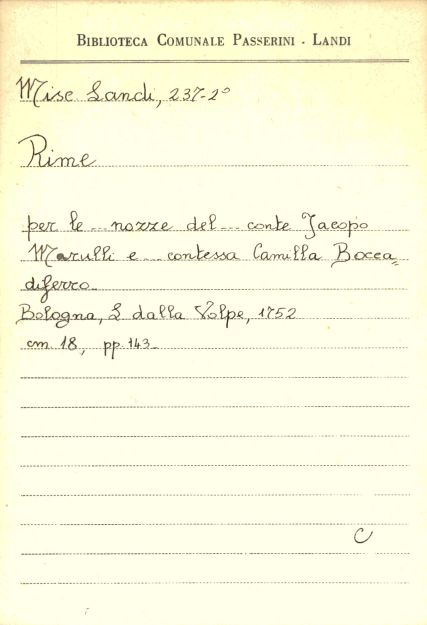 BIBLIOTECA COMUNALE PASSERINI - LANDI
Misc Landi, 237-2°
Rime
per le ... nozze del ... conte Jacopo
Marulli e ... contessa Camilla Bocca=
diferro.
Bologna, L dalla Volpe, 1752
cm 18, pp. 143.
C